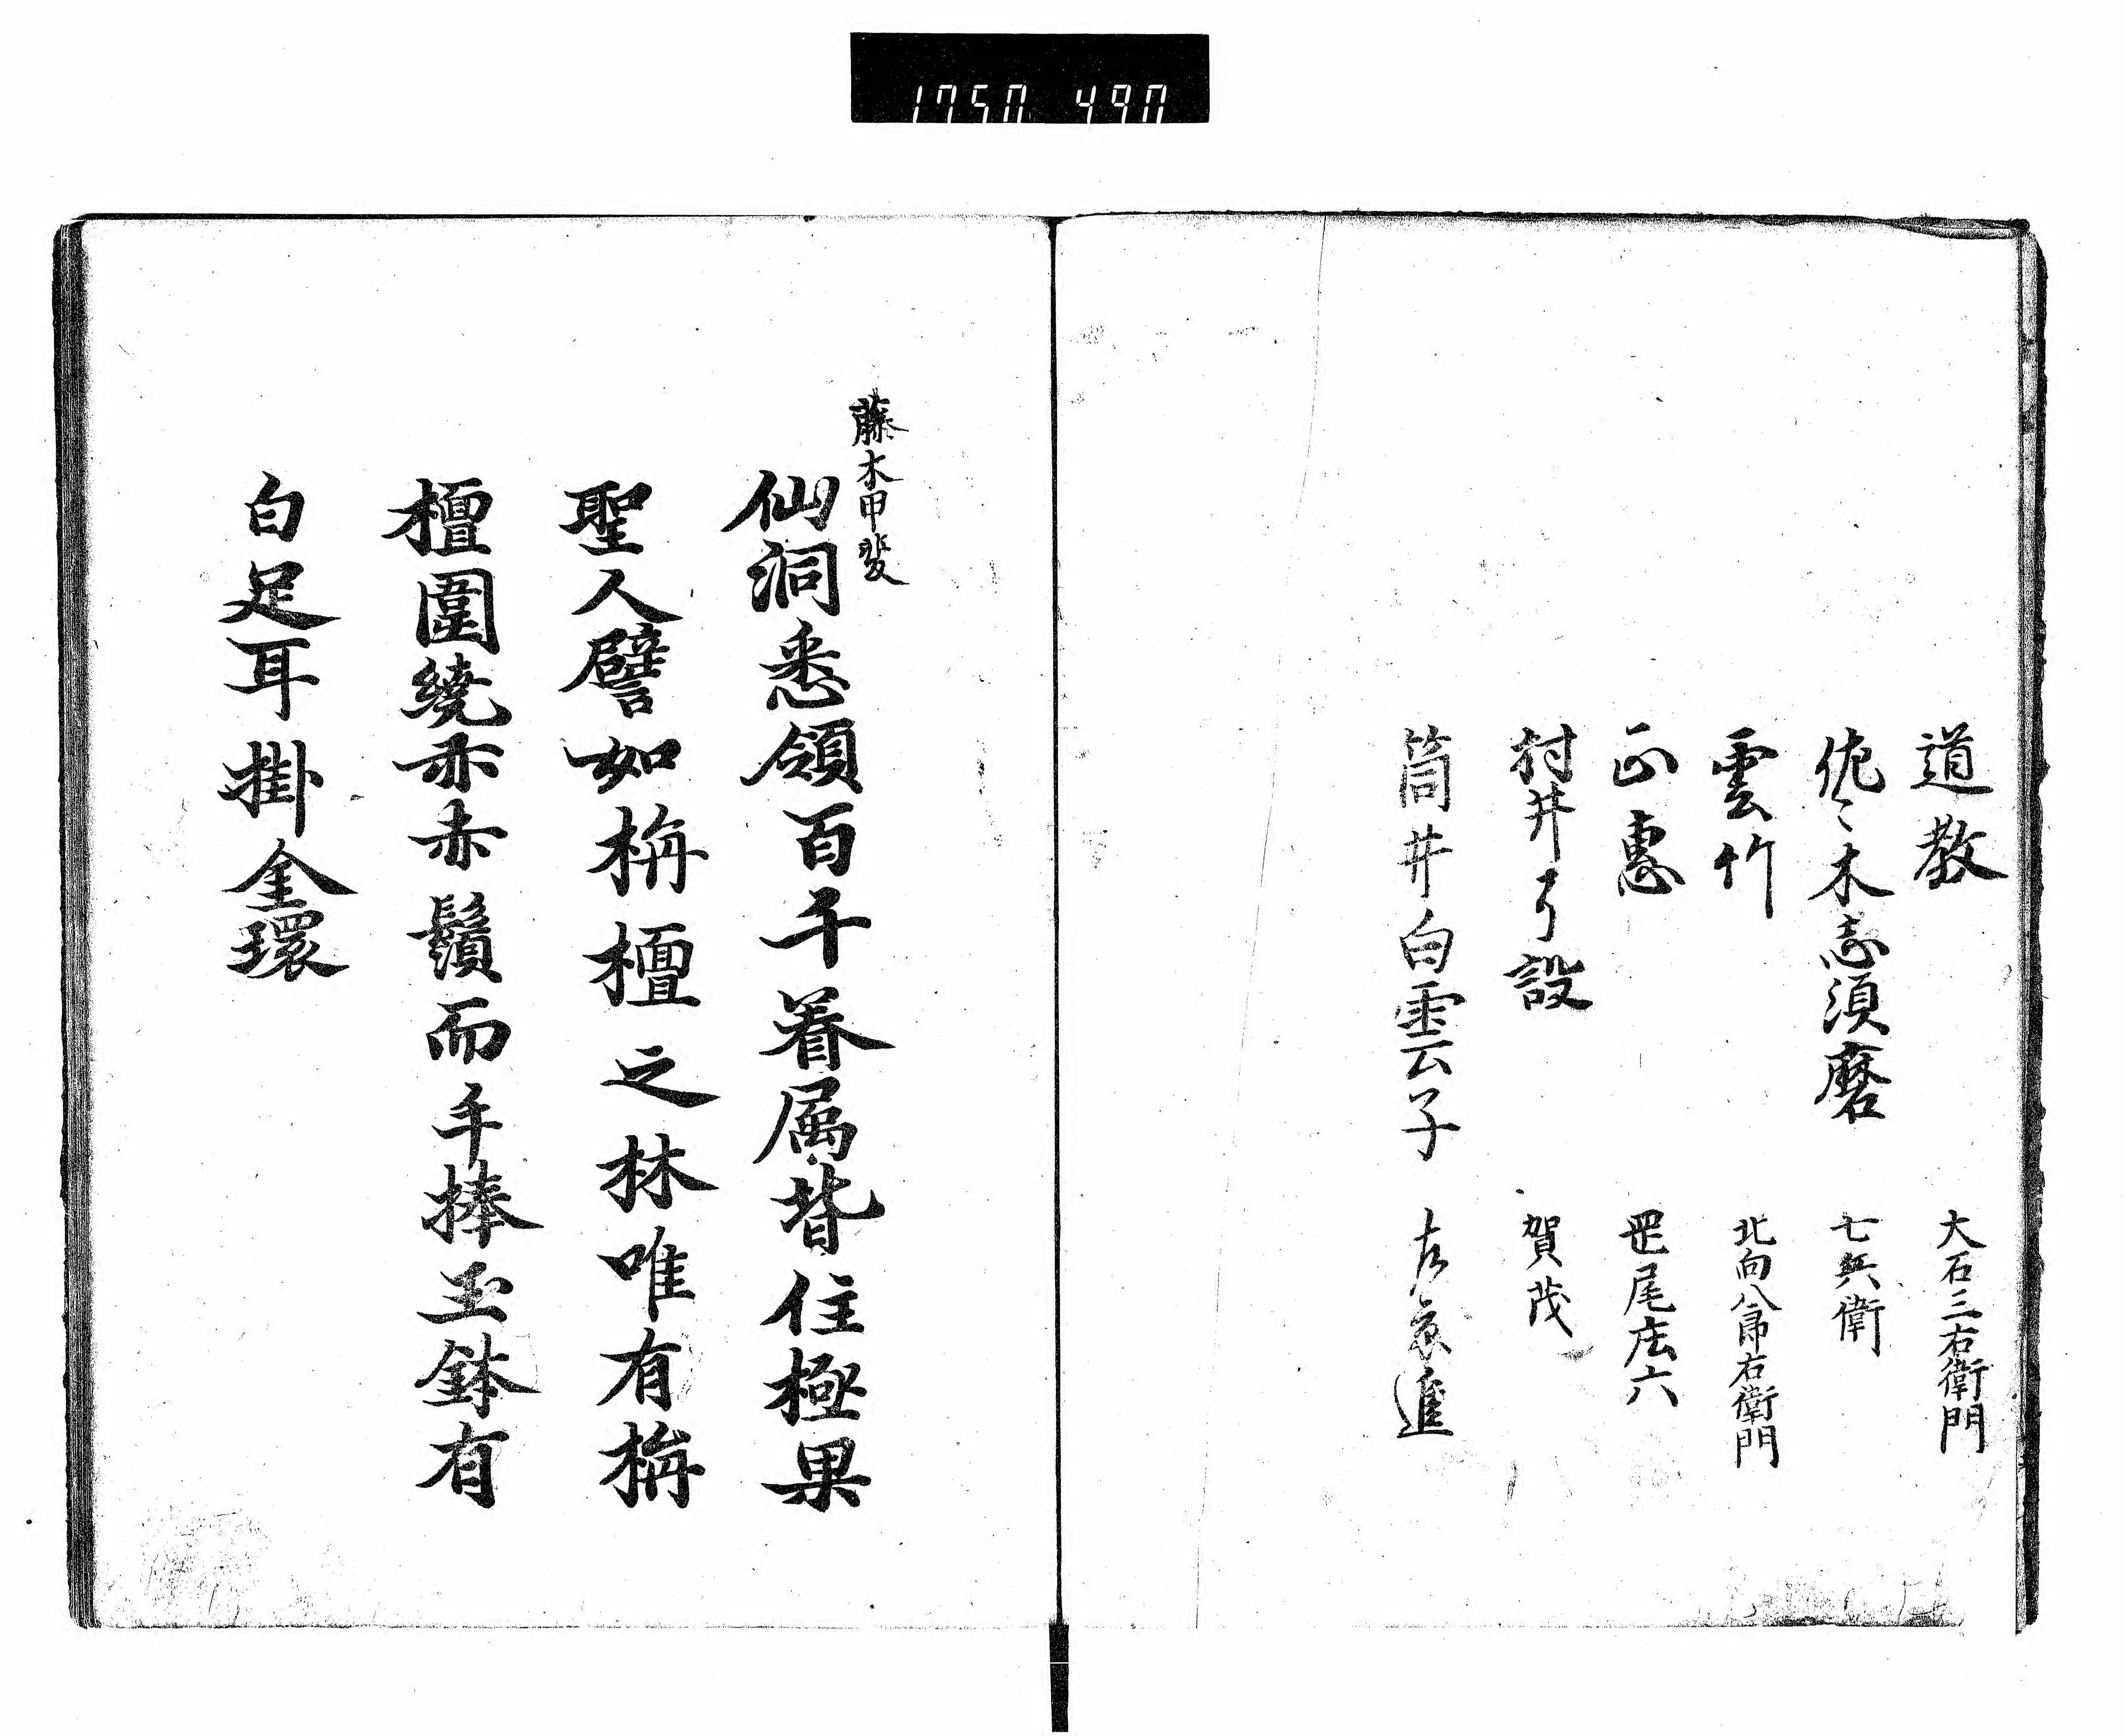 1750 490
道教　大石三右衛門
佐々木志須磨　七兵衛
雲竹　北向八郎右衛門
正惠　疋尾庄六
村井了設　賀茂
筒井白雲子　左京進
藤木甲斐
仙洞悉領百千眷属皆住極果
聖人譬如栴檀之林唯有栴
檀圍繞赤赤鬚而手捧玉鉢有
白足耳掛金環